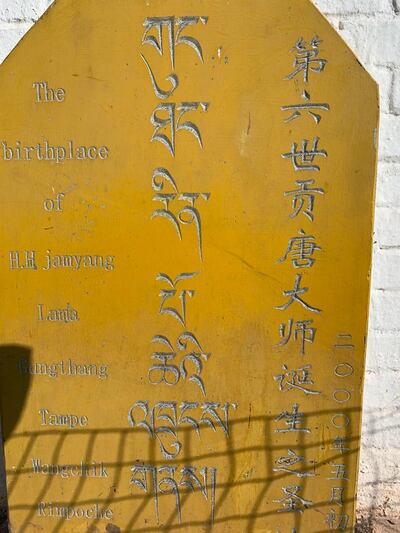 The
birthplace
of
H.H jamyang
Lama
Gungthang
Tampe
Wangchik
Rimpoche
གུང་
ཐང་
རིན་
པོ་
ཆེའི་
འཁྲུངས་
གནས།།
第六世贡唐大师诞生之圣
二〇〇〇年五月初